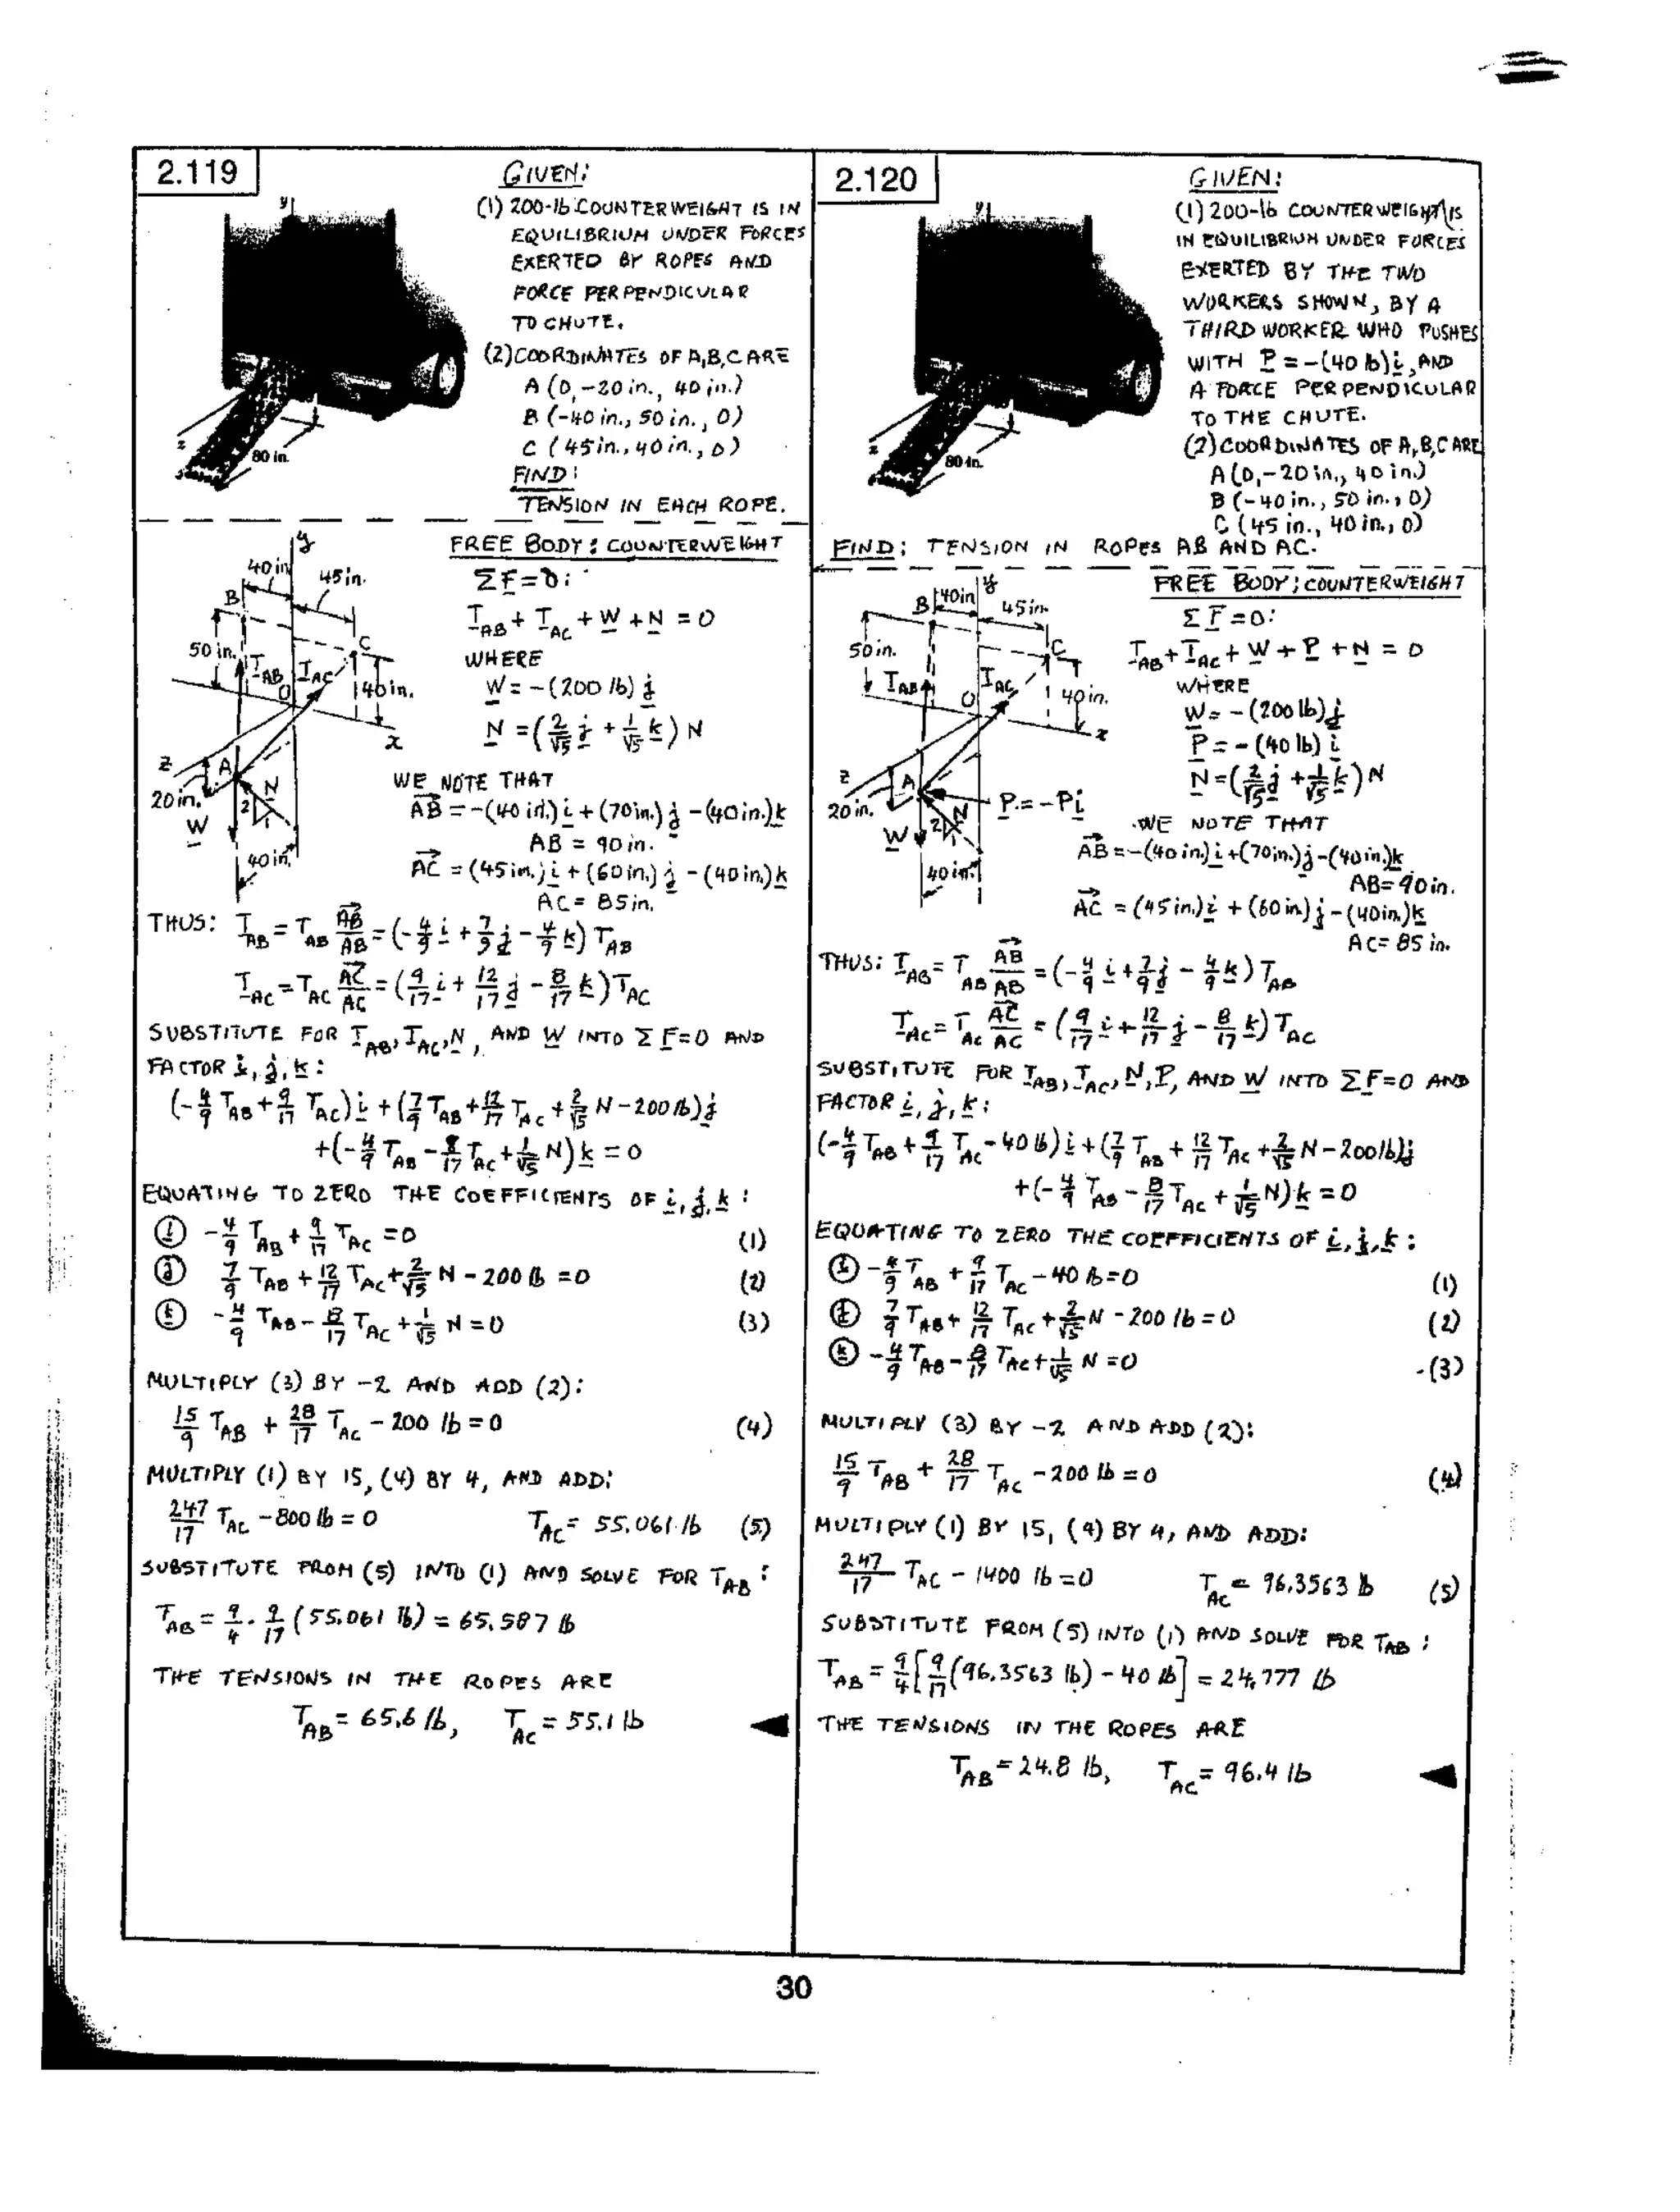 2.119
GIVEN:
(1) 200-lb COUNTERWEIGHT IS IN
EQUILIBRIUM UNDER FORCES
EXERTED BY ROPES AND
FORCE PERPENDICULAR
TO CHUTE.
(2) COORDINATES OF A,B,C ARE
A (0, -20 in., 40 in.)
B (-40 in., 50 in., 0)
C (45 in., 40 in., 0)
FIND:
TENSION IN EACH ROPE.
y
z
80 in.
FREE BODY: COUNTERWEIGHT
ΣF = 0:
T_AB + T_AC + W + N = 0
WHERE
W = -(200 lb) j
N = (2/√5 j + 1/√5 k) N
WE NOTE THAT
AB = -(40 in.) i + (70 in.) j - (40 in.) k
AB = 90 in.
AC = (45 in.) i + (60 in.) j - (40 in.) k
AC = 85 in.
y
40 in.
45 in.
B
C
50 in.
T_AB
T_AC
40 in.
O
x
z
A
20 in.
N
2
1
W
40 in.
THUS: T_AB = T_AB AB/AB = (-4/9 i + 7/9 j - 4/9 k) T_AB
T_AC = T_AC AC/AC = (9/17 i + 12/17 j - 8/17 k) T_AC
SUBSTITUTE FOR T_AB, T_AC, N, AND W INTO ΣF=0 AND
FACTOR i, j, k:
(-4/9 T_AB + 9/17 T_AC) i + (7/9 T_AB + 12/17 T_AC + 2/√5 N - 200 lb) j
+ (-4/9 T_AB - 8/17 T_AC + 1/√5 N) k = 0
EQUATING TO ZERO THE COEFFICIENTS OF i, j, k:
(i) -4/9 T_AB + 9/17 T_AC = 0 (1)
(j) 7/9 T_AB + 12/17 T_AC + 2/√5 N - 200 lb = 0 (2)
(k) -4/9 T_AB - 8/17 T_AC + 1/√5 N = 0 (3)
MULTIPLY (3) BY -2 AND ADD (2):
15/9 T_AB + 28/17 T_AC - 200 lb = 0 (4)
MULTIPLY (1) BY 15, (4) BY 4, AND ADD:
247/17 T_AC - 800 lb = 0 T_AC = 55.061 lb (5)
SUBSTITUTE FROM (5) INTO (1) AND SOLVE FOR T_AB:
T_AB = 9/4 · 9/17 (55.061 lb) = 65.587 lb
THE TENSIONS IN THE ROPES ARE
T_AB = 65.6 lb, T_AC = 55.1 lb
2.120
GIVEN:
(1) 200-lb COUNTERWEIGHT IS
IN EQUILIBRIUM UNDER FORCES
EXERTED BY THE TWO
WORKERS SHOWN, BY A
THIRD WORKER WHO PUSHES
WITH P = -(40 lb) i, AND
A FORCE PERPENDICULAR
TO THE CHUTE.
(2) COORDINATES OF A,B,C ARE
A (0, -20 in., 40 in.)
B (-40 in., 50 in., 0)
C (45 in., 40 in., 0)
y
z
80 in.
FIND: TENSION IN ROPES AB AND AC.
FREE BODY: COUNTERWEIGHT
ΣF = 0:
T_AB + T_AC + W + P + N = 0
WHERE
W = -(200 lb) j
P = -(40 lb) i
N = (2/√5 j + 1/√5 k) N
WE NOTE THAT
AB = -(40 in.) i + (70 in.) j - (40 in.) k
AB = 90 in.
AC = (45 in.) i + (60 in.) j - (40 in.) k
AC = 85 in.
y
40 in.
45 in.
B
C
50 in.
T_AB
T_AC
40 in.
O
x
z
A
20 in.
P = -Pi
N
2
1
W
40 in.
THUS: T_AB = T_AB AB/AB = (-4/9 i + 7/9 j - 4/9 k) T_AB
T_AC = T_AC AC/AC = (9/17 i + 12/17 j - 8/17 k) T_AC
SUBSTITUTE FOR T_AB, T_AC, N, P, AND W INTO ΣF=0 AND
FACTOR i, j, k:
(-4/9 T_AB + 9/17 T_AC - 40 lb) i + (7/9 T_AB + 12/17 T_AC + 2/√5 N - 200 lb) j
+ (-4/9 T_AB - 8/17 T_AC + 1/√5 N) k = 0
EQUATING TO ZERO THE COEFFICIENTS OF i, j, k:
(i) -4/9 T_AB + 9/17 T_AC - 40 lb = 0 (1)
(j) 7/9 T_AB + 12/17 T_AC + 2/√5 N - 200 lb = 0 (2)
(k) -4/9 T_AB - 8/17 T_AC + 1/√5 N = 0 (3)
MULTIPLY (3) BY -2 AND ADD (2):
15/9 T_AB + 28/17 T_AC - 200 lb = 0 (4)
MULTIPLY (1) BY 15, (4) BY 4, AND ADD:
247/17 T_AC - 1400 lb = 0 T_AC = 96.3563 lb (5)
SUBSTITUTE FROM (5) INTO (1) AND SOLVE FOR T_AB:
T_AB = 9/4 [9/17 (96.3563 lb) - 40 lb] = 24.777 lb
THE TENSIONS IN THE ROPES ARE
T_AB = 24.8 lb, T_AC = 96.4 lb
30